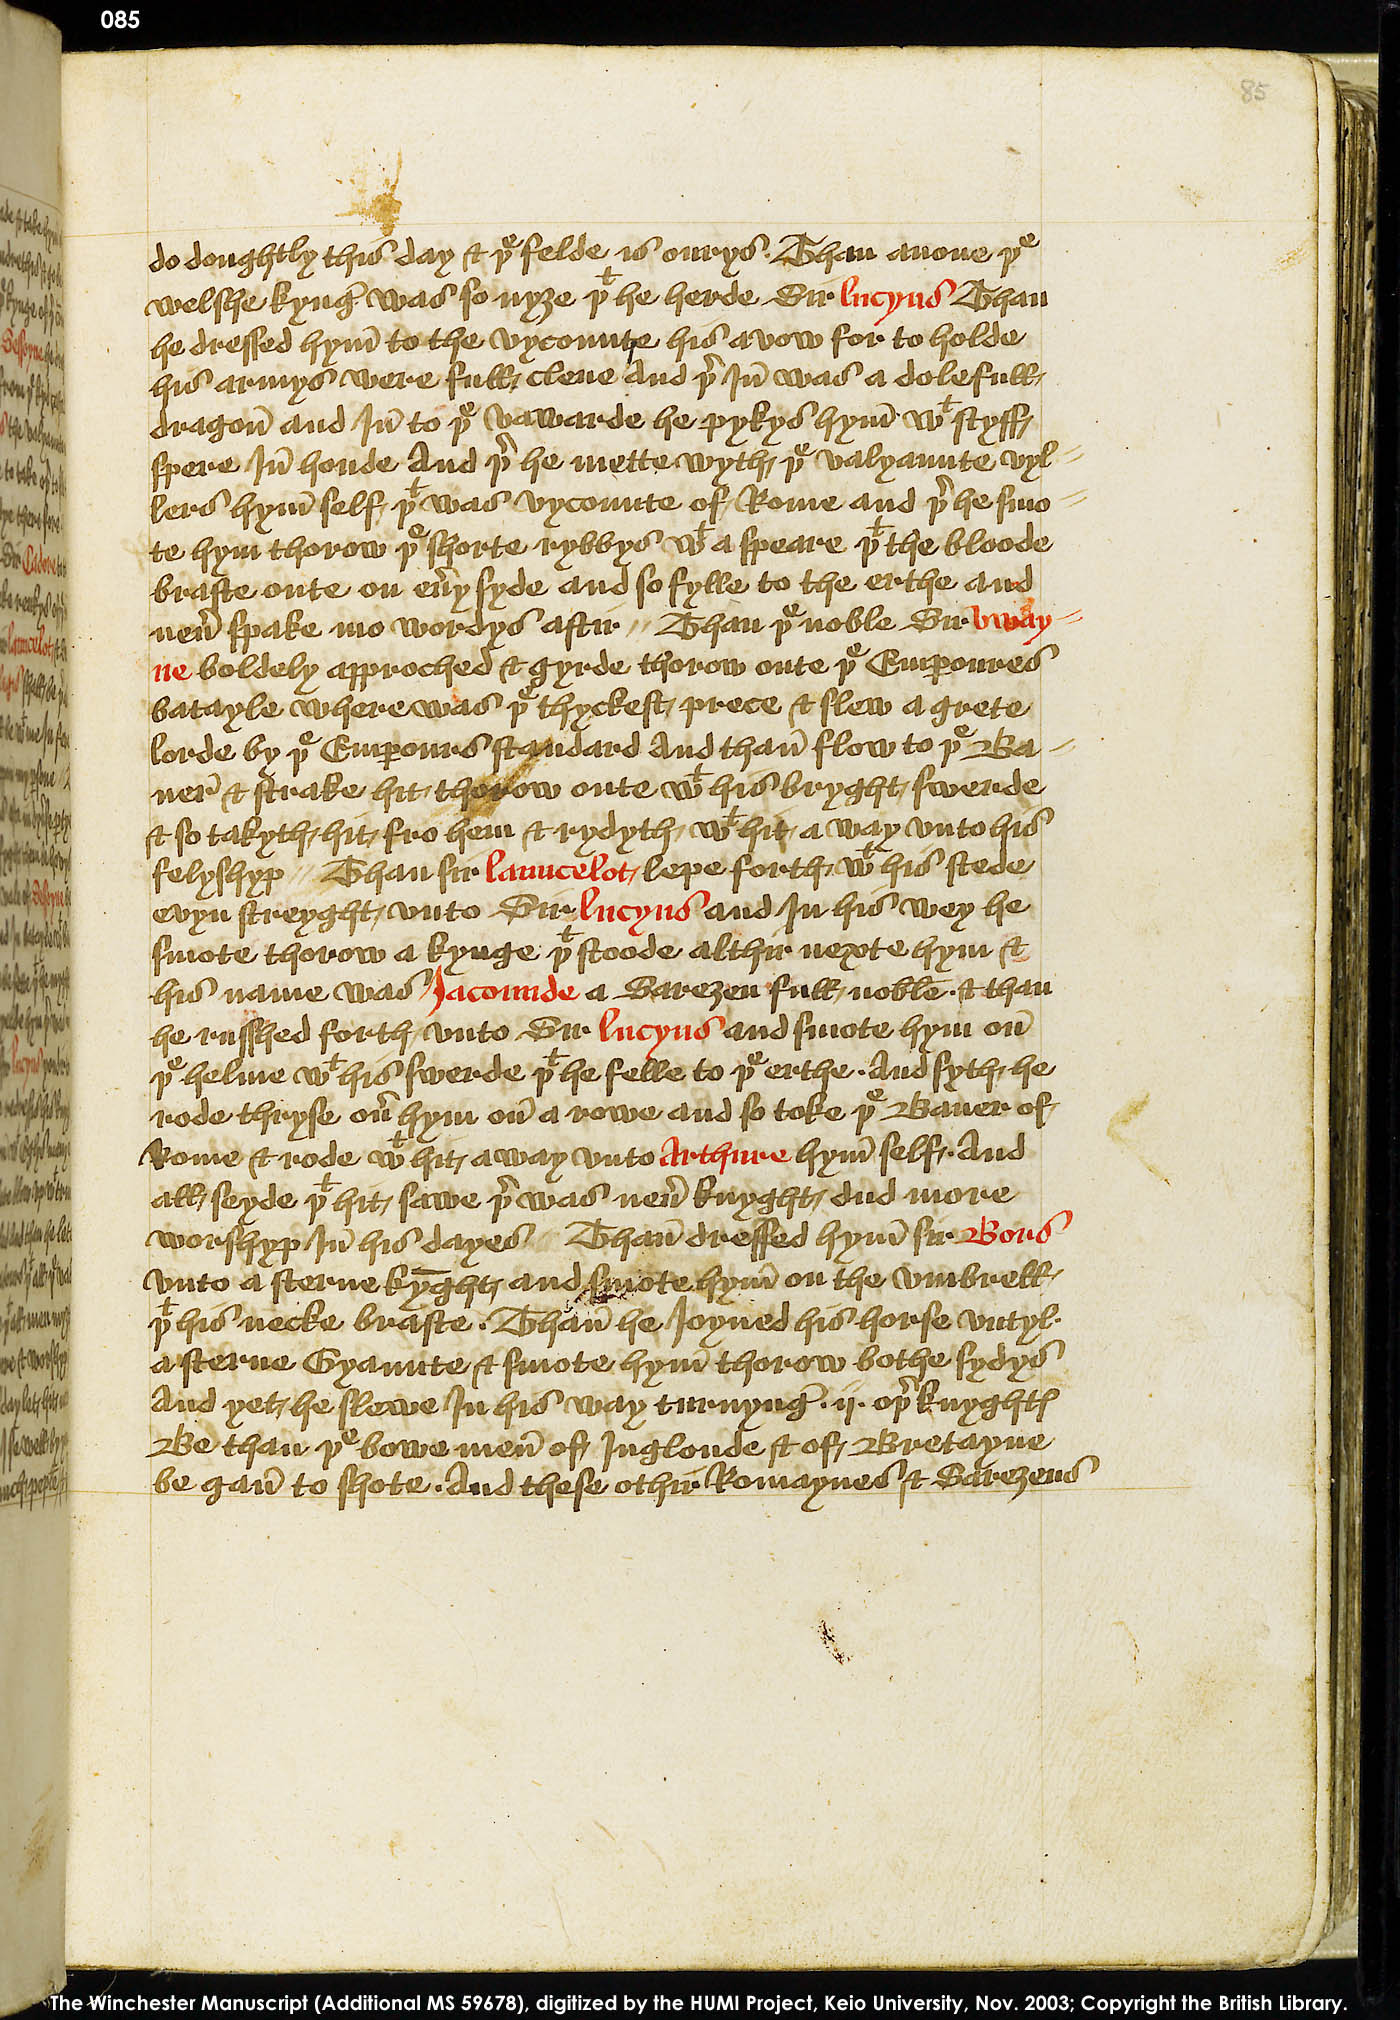 085
85
do doughtly this day & þe felde is ourys. Than anone þe
welshe kyng was so nyȝe þt he herde Sir lucyus Than
he dressed hym̄ to the vycounte his avow for to holde
his armys were full clene And þr In̄ was a dolefull
dragon̄ and In̄ to þe vawarde he pykys hym̄ wt styff
spere In̄ honde And þr he mette wyth þe valyaunte vyl=
lers hym̄ self þt was vycounte of Rome and þr he smo=
te hym thorow þe shorte rybbys wt a speare þt the bloode
braste oute on eūy syde and so fylle to the erthe and
neū spake mo wordys aftir // Than þe noble Sir vway=
ne boldely approched & gyrde thorow oute þe Emp̱oures
batayle where was þe thyckest prece & slew a grete
lorde by þe Emp̱ours standard And than̄ flow to þe Ba=
ner̄ & strake hit thorow oute wt his bryght swerde
& so takyth hit fro hem & rydyth wt hit a way vnto his
felyshyp // Than sir launcelot lepe forth wt his stede
evyn streyght vnto Sir lucyus and In his wey he
smote thorow a kynge þt stoode althir nexte hym &
his name was Jacounde a Sarezen full noble. & than
he russhed forth vnto Sir lucyus and smote hym on̄
þe helme wt his swerde þt he felle to þe erthe. And syth he
rode thryse oū hym on̄ a rowe and so toke þe Baner of
Rome & rode wt hit a way vnto Arthure hym̄ self. And
all seyde þt hit sawe þr was neū knyght dud more
worshyp In̄ his dayes // Than̄ dressed hym̄ sir Bors
vnto a sterne ky̅ght and smote hym̄ on the vmbrell
þt his necke braste. Than̄ he Joyned his horse vntyl.
a sterne Gyaunte & smote hym̄ thorow bothe sydys
And yet he slewe In his way turnynḡ. ij. oþr knyghtꝭ
Be than þe bowe men̄ of Inglonde & of Bretayne
be gan̄ to shote. And these othir Romaynes & Sarezens
The Winchester Manuscript (Additional MS 59678), digitized by the HUMI Project, Keio University, Nov. 2003; Copyright the British Library.